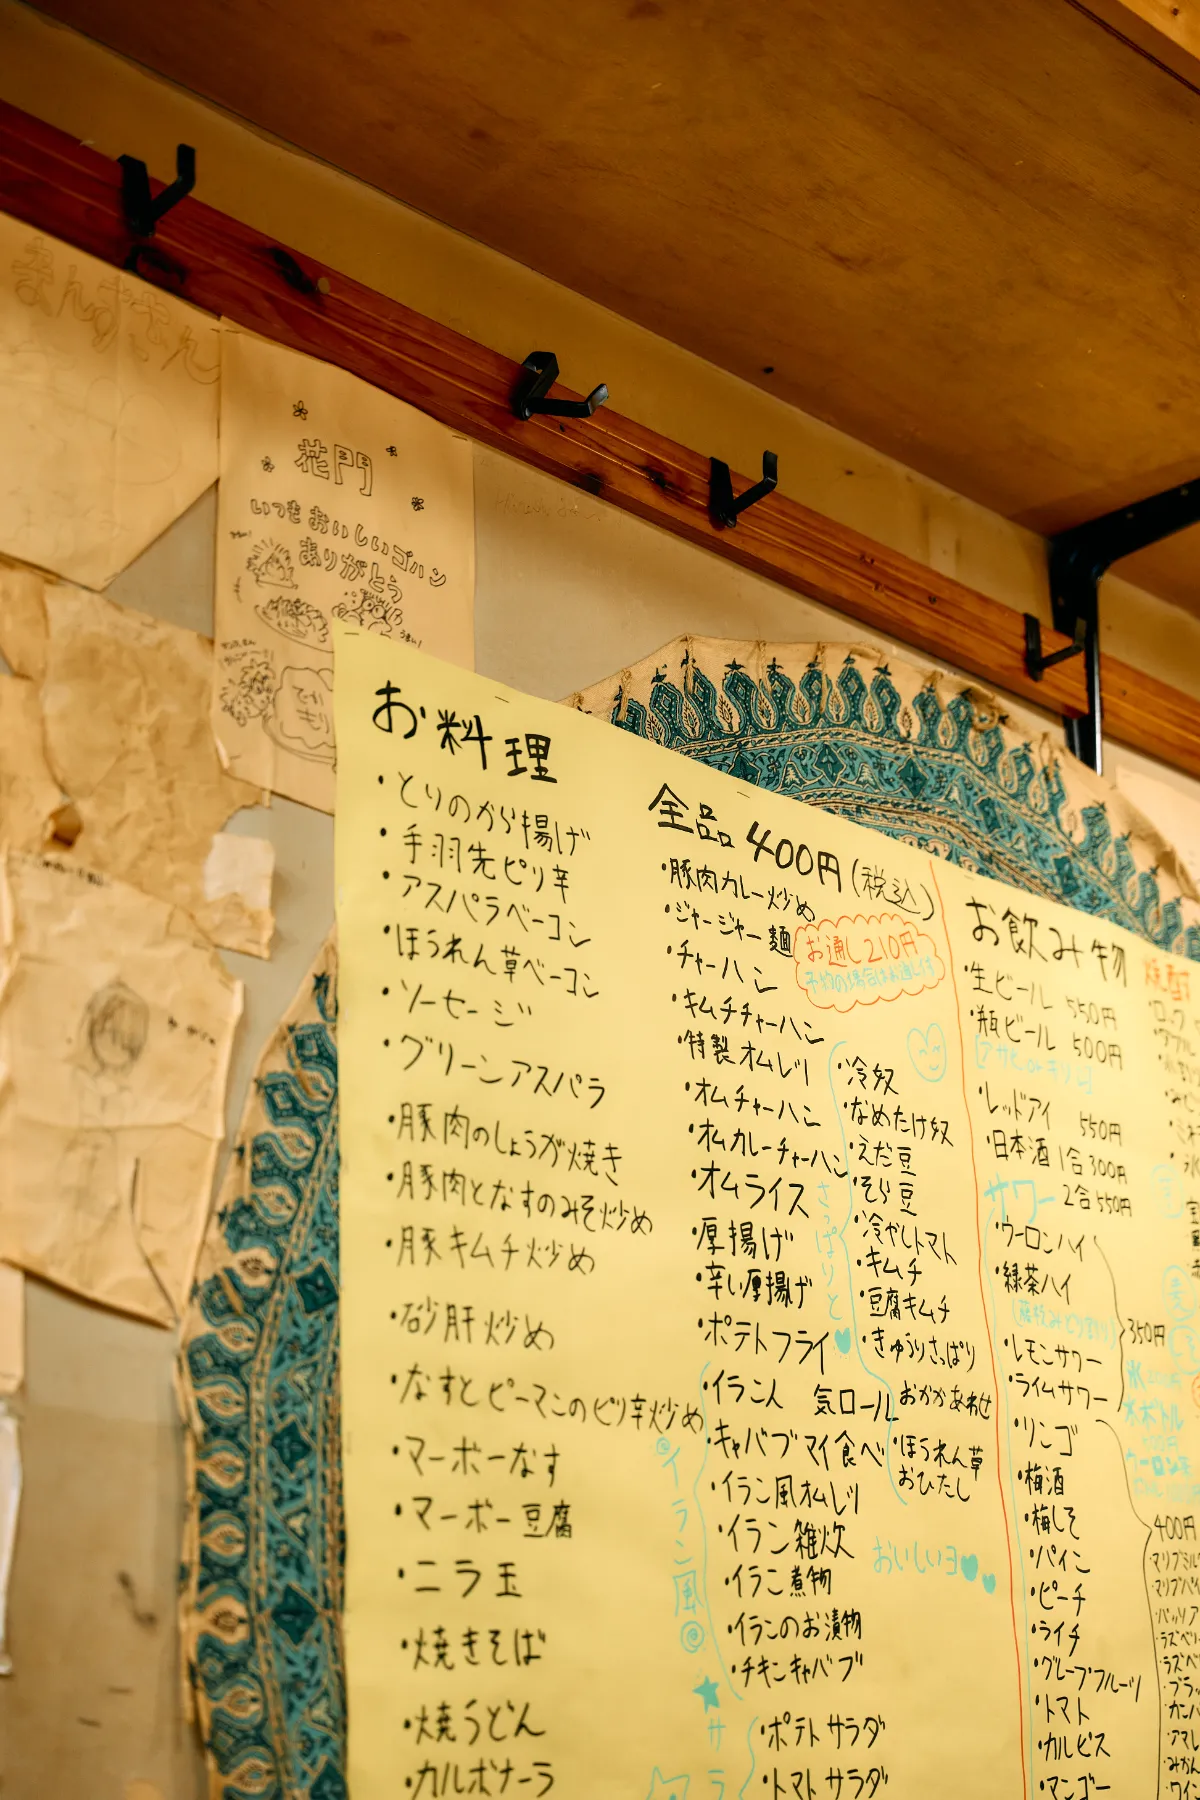 まんずさん
花門
いつもおいしいゴハン
ありがとう
お料理
・とりのから揚げ
・手羽先ピリ辛
・アスパラベーコン
・ほうれん草ベーコン
・ソーセージ
・グリーンアスパラ
・豚肉のしょうが焼き
・豚肉となすのみそ炒め
・豚キムチ炒め
・砂肝炒め
・なすとピーマンのピリ辛炒め
・マーボーなす
・マーボー豆腐
・ニラ玉
・焼きそば
・焼うどん
・カルボナーラ
全品400円(税込)
・豚肉カレー炒め
・ジャージャー麺
・チャーハン
・キムチチャーハン
・特製オムレツ
・オムチャーハン
・オムカレーチャーハン
・オムライス
・厚揚げ
・辛い厚揚げ
・ポテトフライ
お通し210円
予約の場合はお通し付
さっぱりと
・冷奴
・なめたけ奴
・えだ豆
・そら豆
・冷やしトマト
・キムチ
・豆腐キムチ
・きゅうりさっぱり
おかかあわせ
・ほうれん草
おひたし
@イラン風@
・イラン人 気ロール
・キャバブマイ食べ
・イラン風オムレツ
・イラン雑炊
・イラン煮物
・イランのお漬物
・チキンキャバブ
おいしいヨ
★サラ
・ポテトサラダ
・トマトサラダ
お飲み物
・生ビール 550円
・瓶ビール 500円
[アサヒorキリン]
・レッドアイ 550円
・日本酒 1合300円
2合550円
サワー
・ウーロンハイ
・緑茶ハイ
・レモンサワー
・ライムサワー
350円
・リンゴ
・梅酒
・梅しそ
・パイン
・ピーチ
・ライチ
・グレープフルーツ
・トマト
・カルピス
・マンゴー
400円